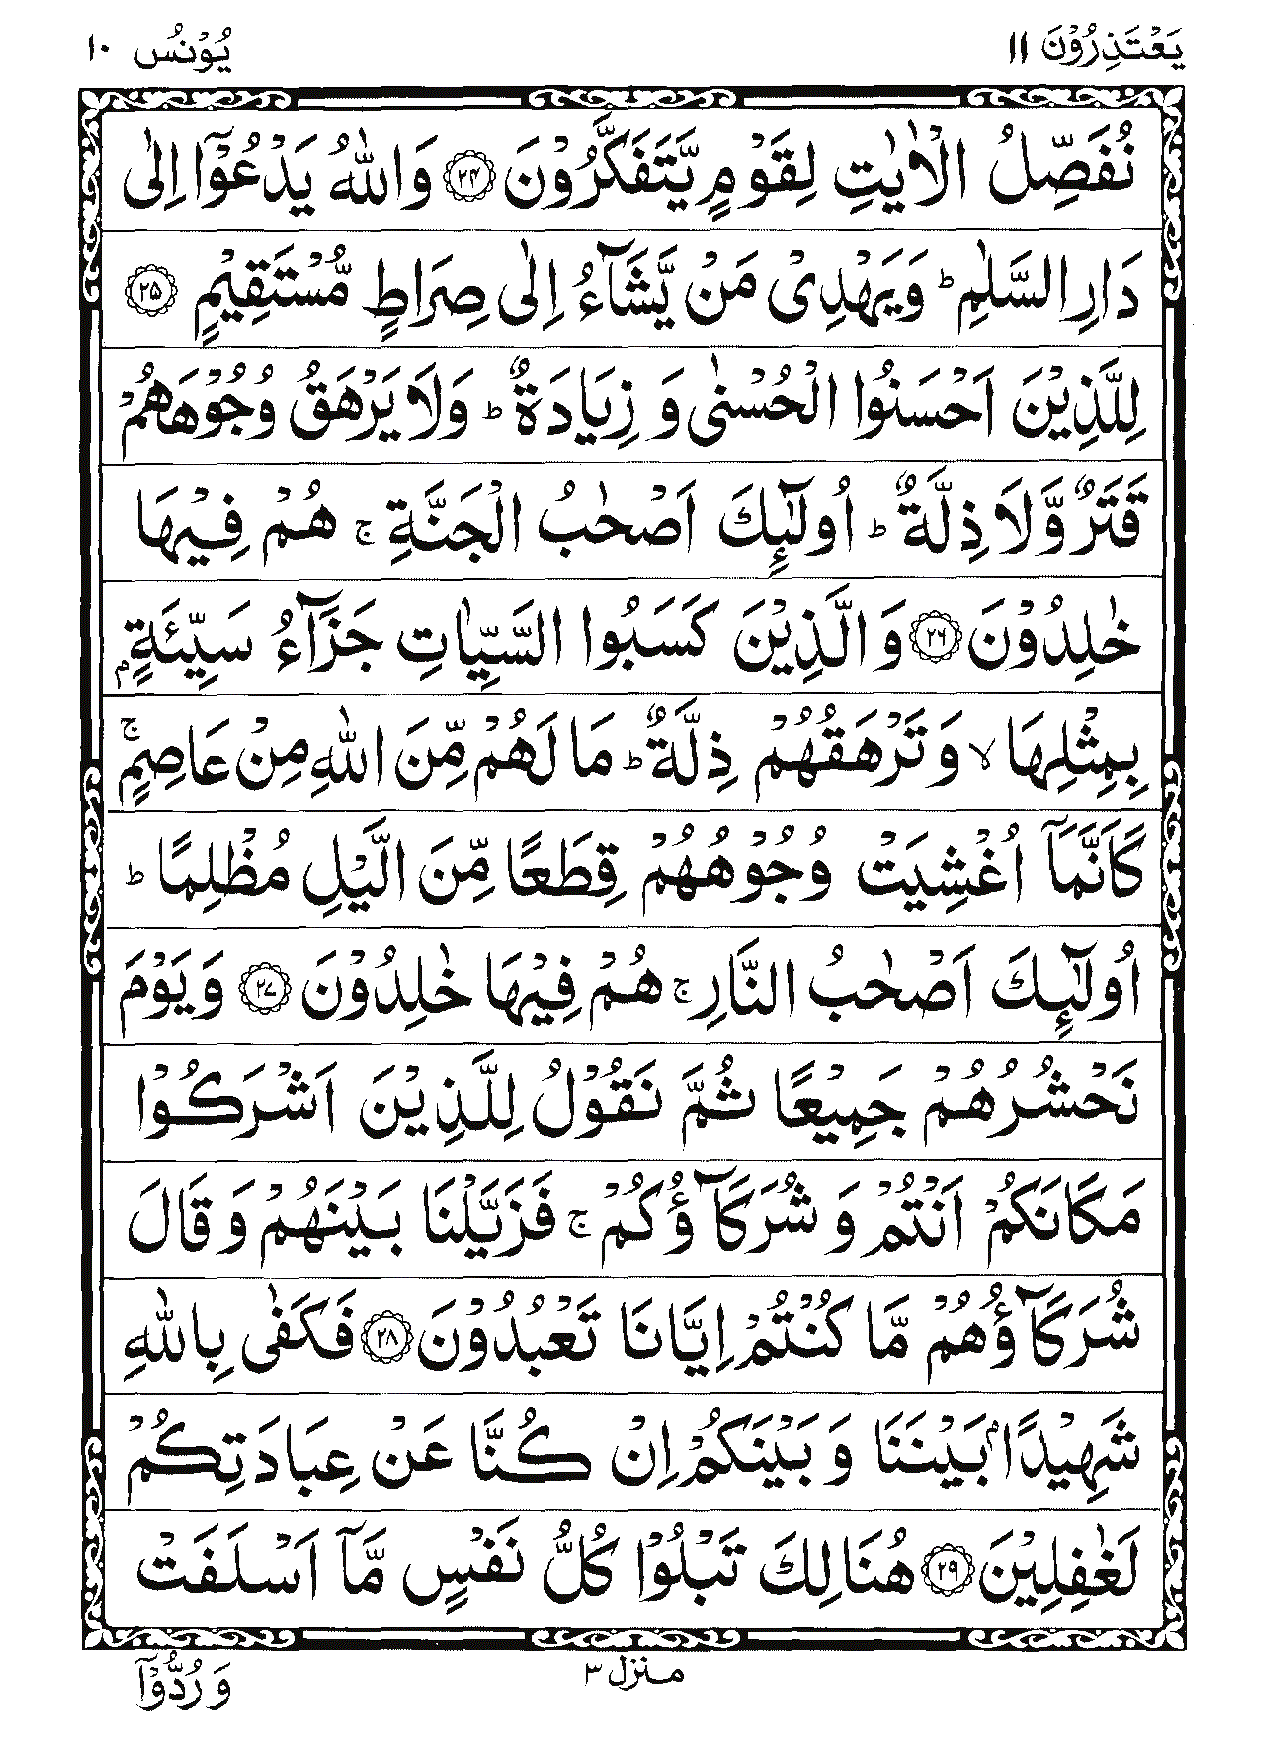 يَعْتَذِرُوْنَ ۱۱
يُوْنُس ۱۰
نُفَصِّلُ الْاٰيٰتِ لِقَوْمٍ يَّتَفَكَّرُوْنَ ﴿۲۴﴾ وَاللّٰهُ يَدْعُوْۤا اِلٰى
دَارِ السَّلٰمِ ؕ وَيَهْدِىْ مَنْ يَّشَآءُ اِلٰى صِرَاطٍ مُّسْتَقِيْمٍ ﴿۲۵﴾
لِلَّذِيْنَ اَحْسَنُوا الْحُسْنٰى وَ زِيَادَةٌ ؕ وَلَا يَرْهَقُ وُجُوْهَهُمْ
قَتَرٌ وَّلَا ذِلَّةٌ ؕ اُولٰٓئِكَ اَصْحٰبُ الْجَنَّةِ ۚ هُمْ فِيْهَا
خٰلِدُوْنَ ﴿۲۶﴾ وَالَّذِيْنَ كَسَبُوا السَّيِّاٰتِ جَزَآءُ سَيِّئَةٍۭ
بِمِثْلِهَا ۙ وَ تَرْهَقُهُمْ ذِلَّةٌ ؕ مَا لَهُمْ مِّنَ اللّٰهِ مِنْ عَاصِمٍ ۚ
كَاَنَّمَاۤ اُغْشِيَتْ وُجُوْهُهُمْ قِطَعًا مِّنَ الَّيْلِ مُظْلِمًا ؕ
اُولٰٓئِكَ اَصْحٰبُ النَّارِ ۚ هُمْ فِيْهَا خٰلِدُوْنَ ﴿۲۷﴾ وَيَوْمَ
نَحْشُرُهُمْ جَمِيْعًا ثُمَّ نَقُوْلُ لِلَّذِيْنَ اَشْرَكُوْا
مَكَانَكُمْ اَنْتُمْ وَ شُرَكَآؤُكُمْ ۚ فَزَيَّلْنَا بَيْنَهُمْ وَ قَالَ
شُرَكَآؤُهُمْ مَّا كُنْتُمْ اِيَّانَا تَعْبُدُوْنَ ﴿۲۸﴾ فَكَفٰى بِاللّٰهِ
شَهِيْدًۢا بَيْنَنَا وَ بَيْنَكُمْ اِنْ كُنَّا عَنْ عِبَادَتِكُمْ
لَغٰفِلِيْنَ ﴿۲۹﴾ هُنَالِكَ تَبْلُوْا كُلُّ نَفْسٍ مَّاۤ اَسْلَفَتْ
منزل ۳
وَ رُدُّوْۤا